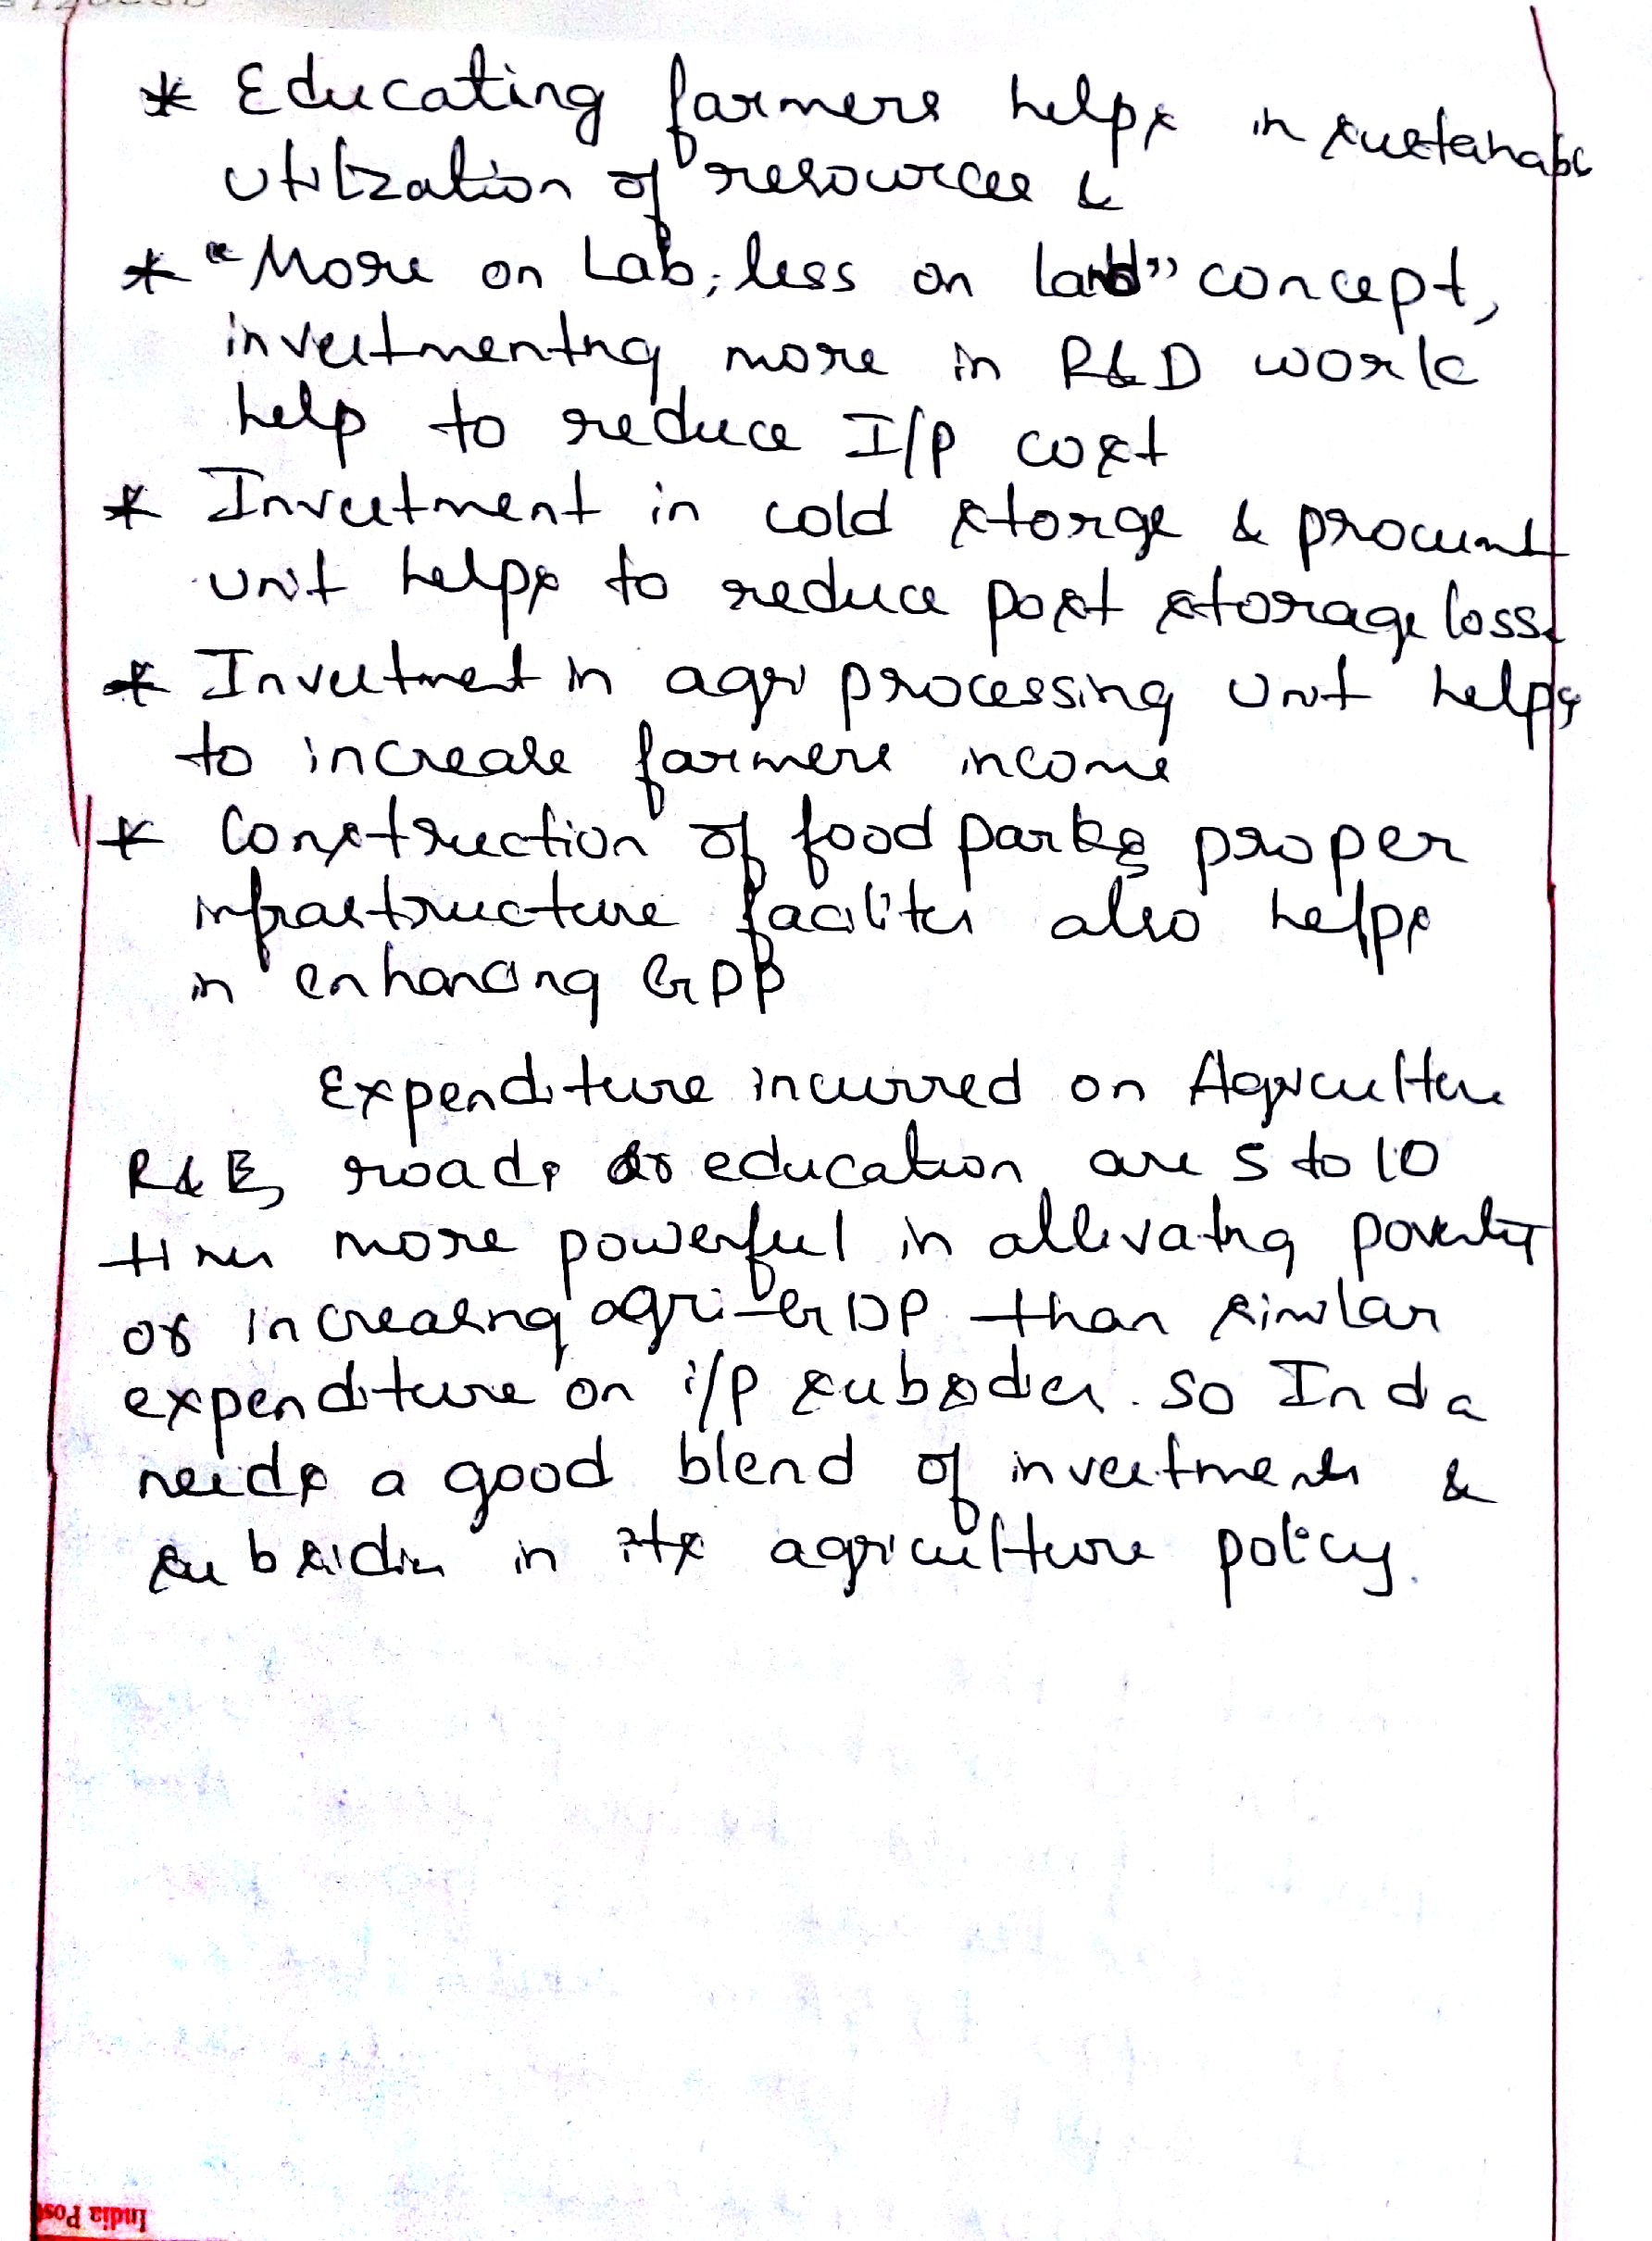 * Educating farmers helps in sustainable
utilization of resources &
* "More on Lab, less on land" concept,
investmenting more in R&D work
help to reduce I/P cost
* Investment in cold storge & procumnt
unit helps to reduce post storage loss.
* Investment in agri processing unit helps
to increase farmers income
* Construction of food parks proper
infrastructure facilities also helps
in enhancing GDP
Expenditure incurred on Agriculture
R&E, roads or education are 5 to 10
times more powerful in allivating poverty
or increasing agri-GDP than similar
expenditure on i/p subsidies. so India
needs a good blend of investments &
subsidies in its agriculture policy.
India Post